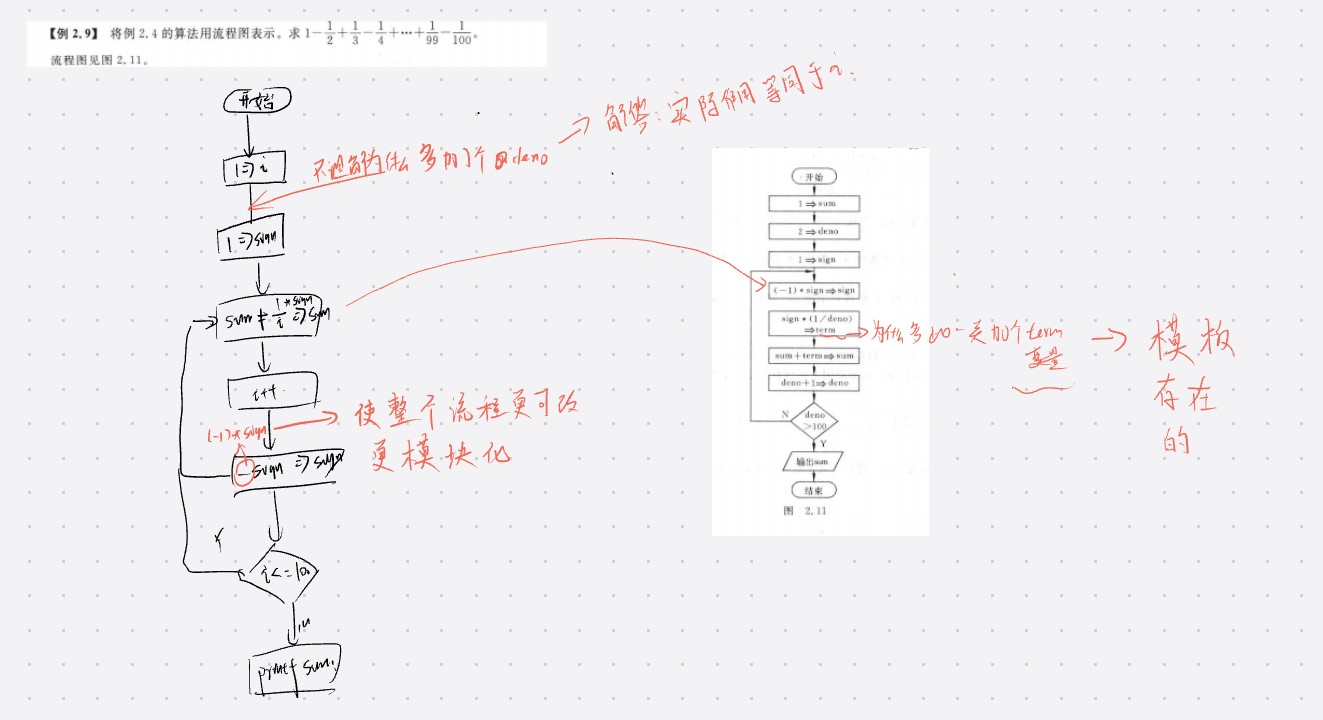 【例 2.9】 将例 2.4 的算法用流程图表示。求 1-1/2+1/3-1/4+…+1/99-1/100。
流程图见图 2.11。
开始
1⇒i
不理解为什么多加了个deno
→ 解答:实际作用等同于i.
1⇒sign
sum + 1*sign/i ⇒sum
i++.
(-1)*sign
→ 使整个流程更可改
更模块化
-sign ⇒sign
Y
i<=100
N
print sum.
开始
1⇒sum
2⇒deno
1⇒sign
(-1)*sign⇒sign
sign*(1/deno)
⇒term
→为什么多
加个term
变量
→ 模板
存在
的
sum+term⇒sum
deno+1⇒deno
N
deno
>100
Y
输出sum
结束
图 2.11